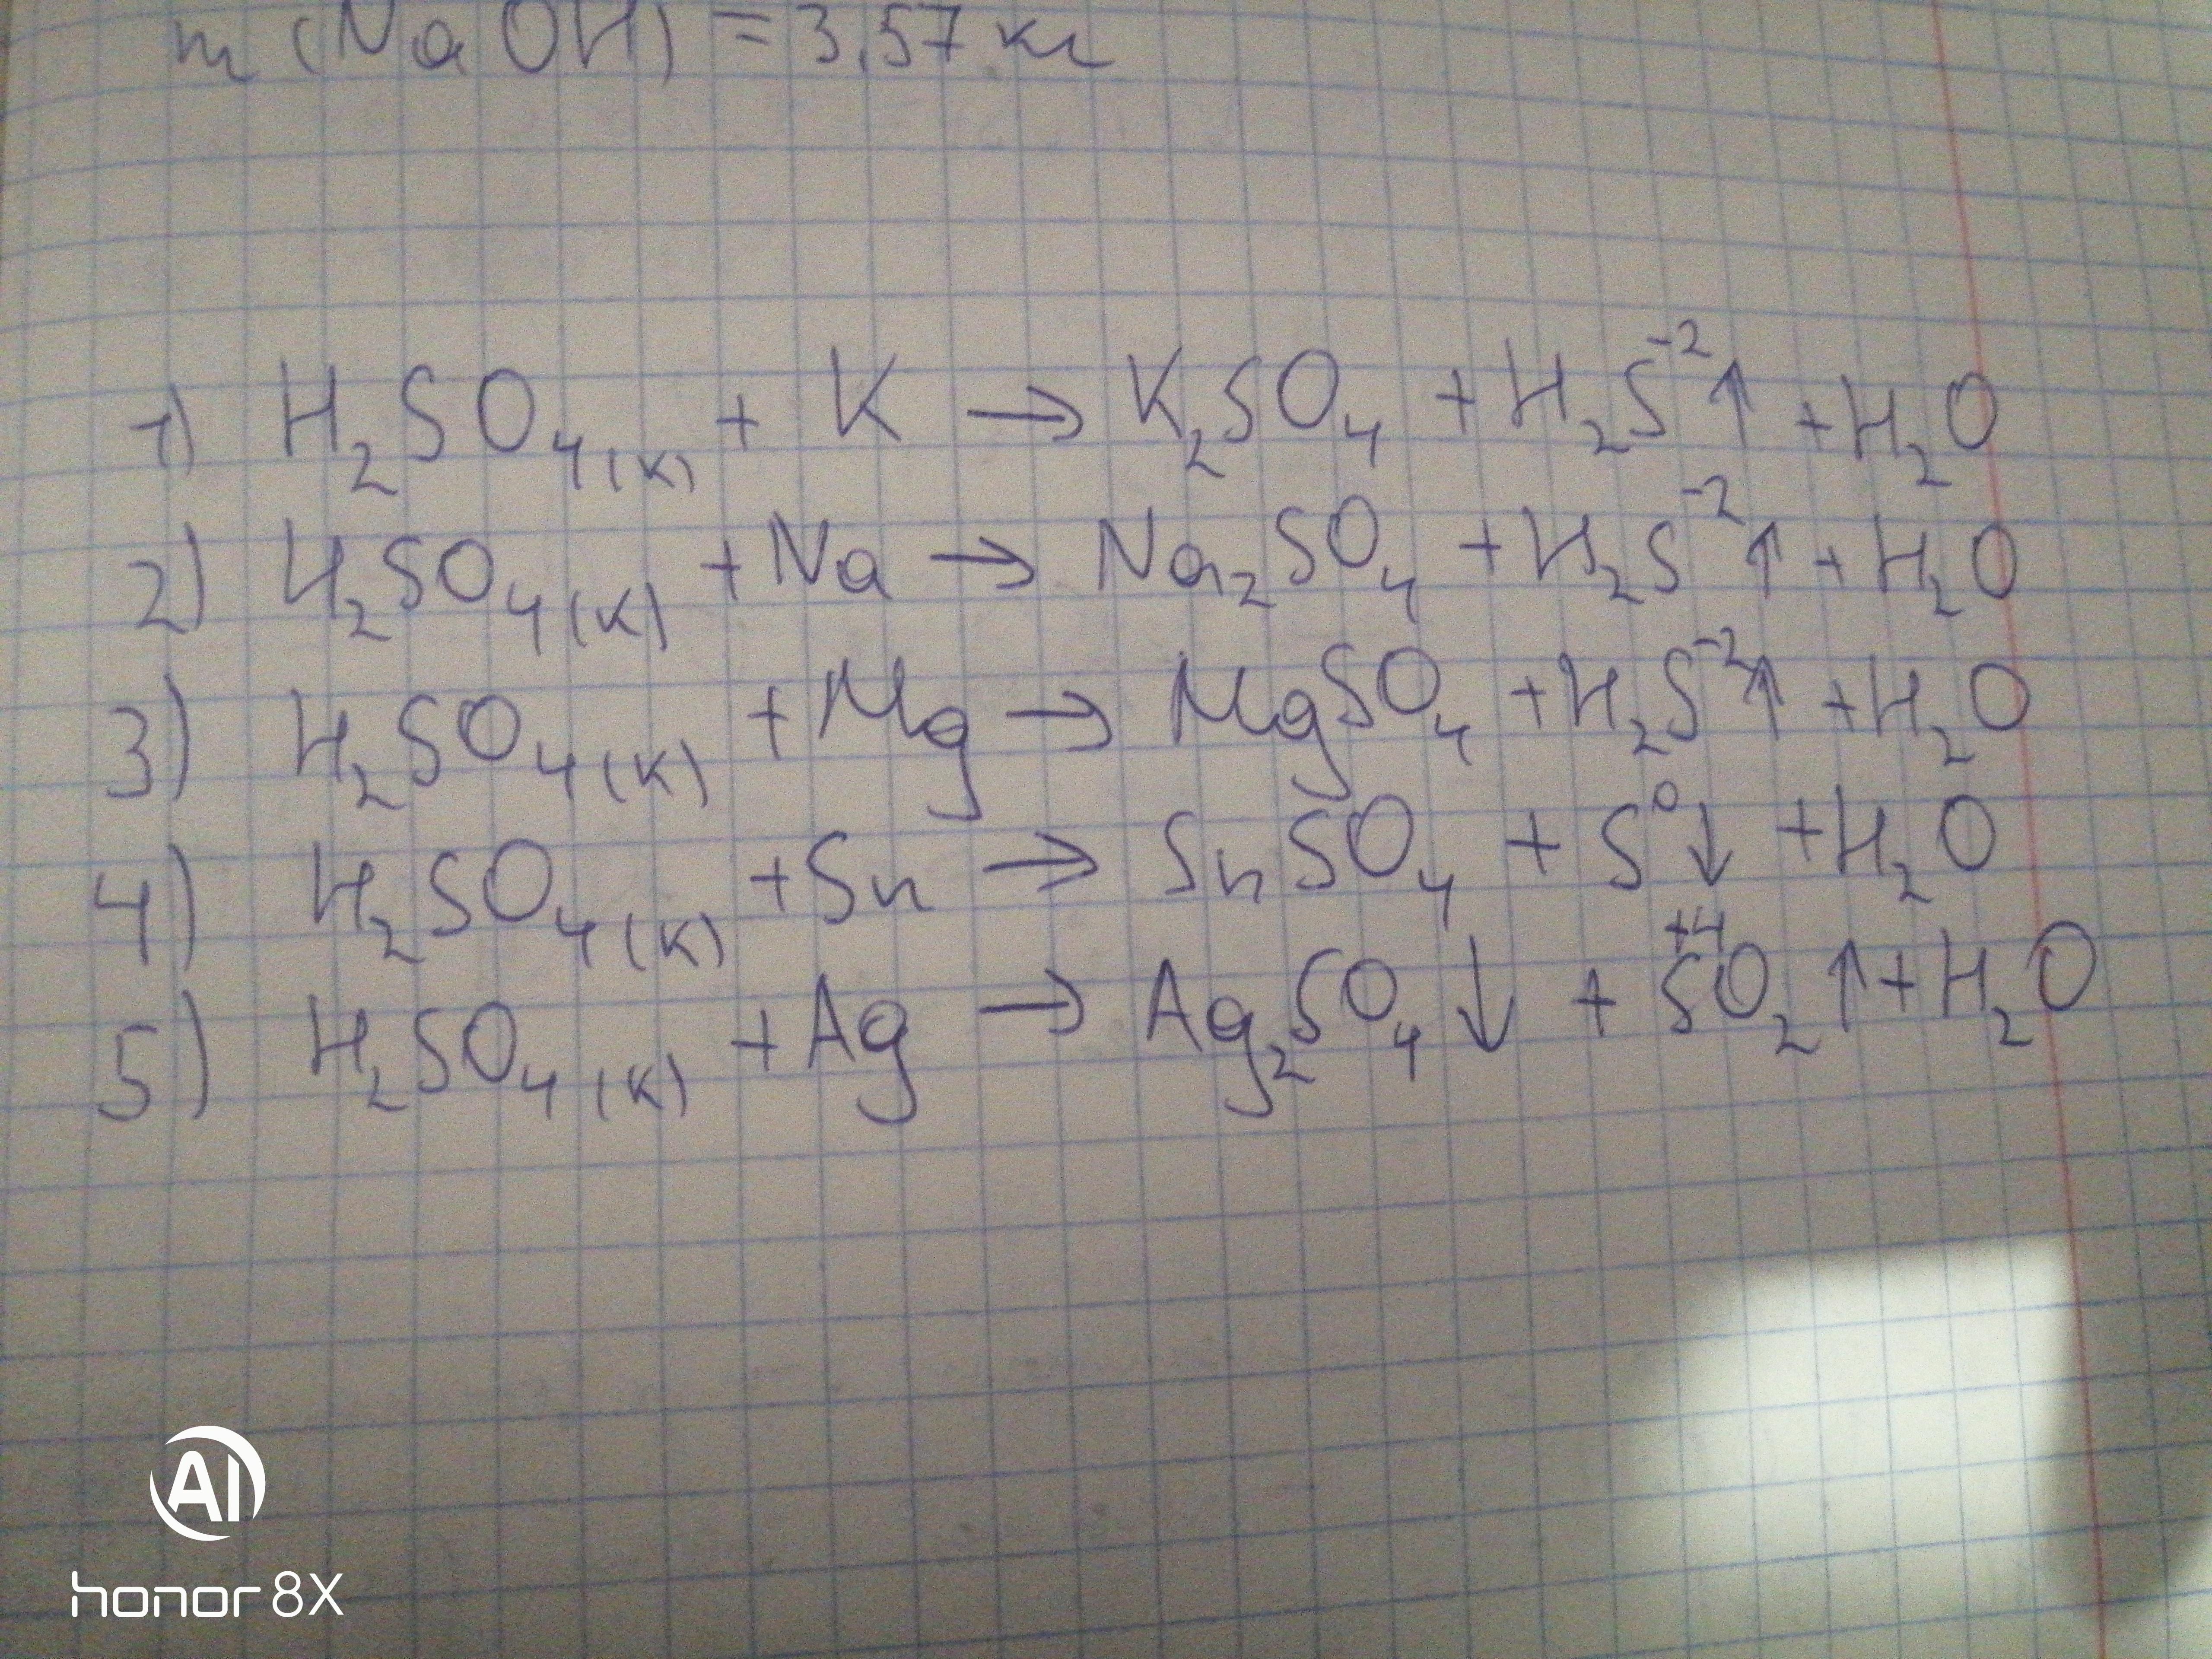 m (NaOH) = 3,57 кг
1) H₂SO₄(к) + K → K₂SO₄ + H₂S⁻²↑ + H₂O
2) H₂SO₄(к) + Na → Na₂SO₄ + H₂S⁻²↑ + H₂O
3) H₂SO₄(к) + Mg → MgSO₄ + H₂S⁻²↑ + H₂O
4) H₂SO₄(к) + Sn → SnSO₄ + S⁰↓ + H₂O
5) H₂SO₄(к) + Ag → Ag₂SO₄↓ + S⁺⁴O₂↑ + H₂O
AI
honor 8X